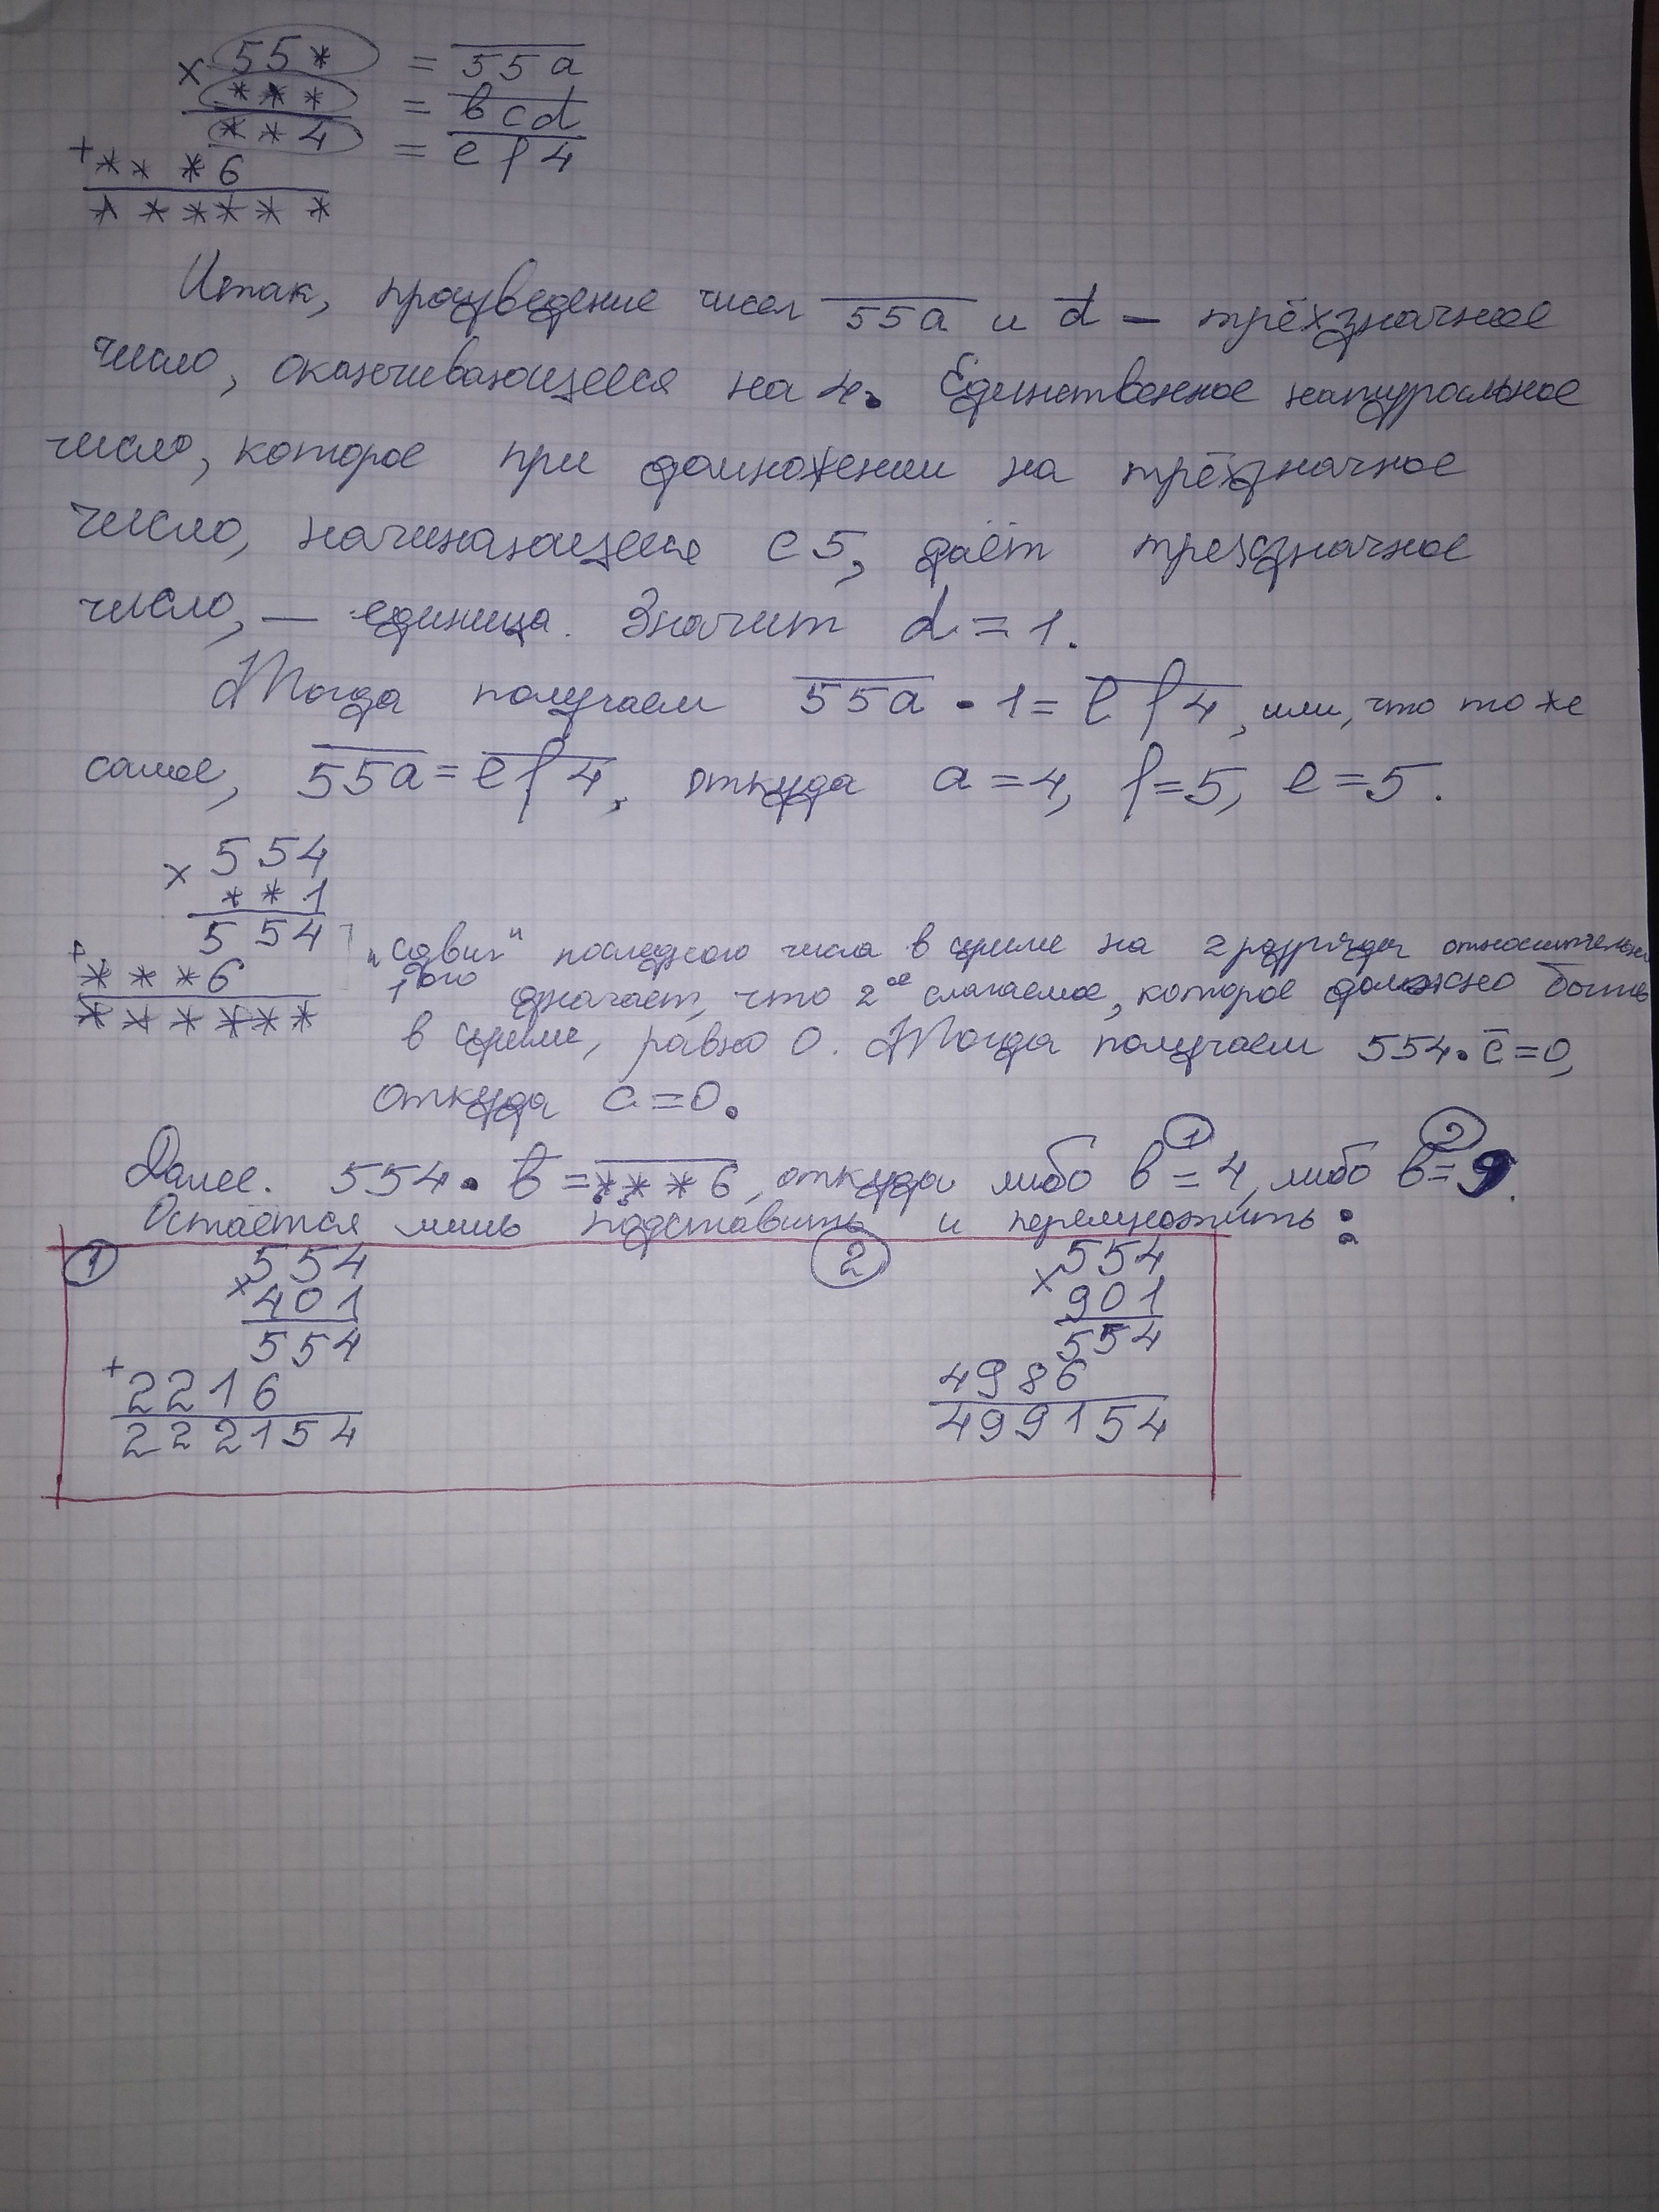 × 55* = 55a
*** = bcd
**4 = ef4
+ ***6
******
Итак, произведение чисел 55a и d — трёхзначное
число, оканчивающееся на 4. Единственное натуральное
число, которое при домножении на трёхзначное
число, начинающееся с 5, даёт трехзначное
число, — единица. Значит d = 1.
Тогда получаем 55a · 1 = ef4, или, что то же
самое, 55a = ef4, откуда a = 4, f = 5, e = 5.
× 554
**1
554
+ ***6
******
"Сдвиг" последнего числа в сумме на 2 разряда относительно
1ого означает, что 2ое слагаемое, которое должно быть
в сумме, равно 0. Тогда получаем 554 · c = 0,
откуда c = 0.
Далее. 554 · b = ***6, откуда либо b = 4, ① либо b = 9. ②
Остаётся лишь подставить и перемножить:
①
554
× 401
554
+ 2216
222154
②
554
× 901
554
4986
499154